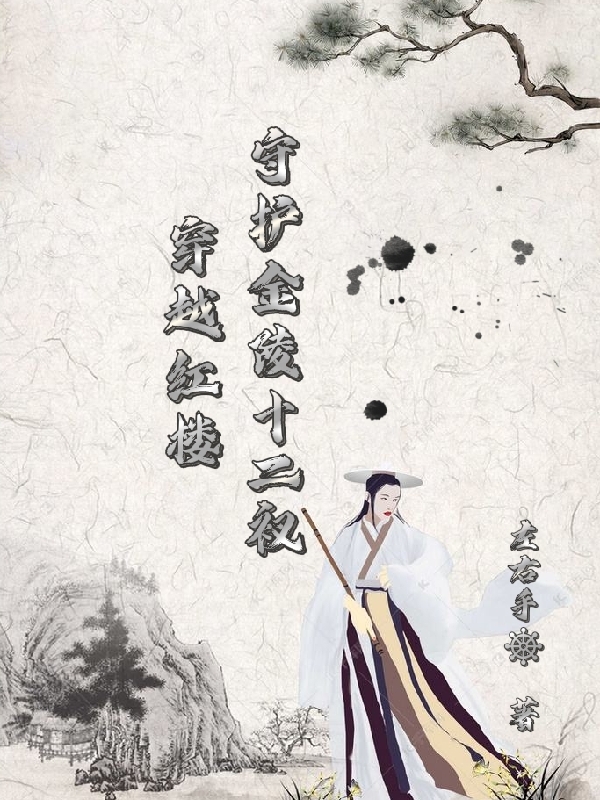 守护金陵十二衩
穿越红楼
左右手☸ 著